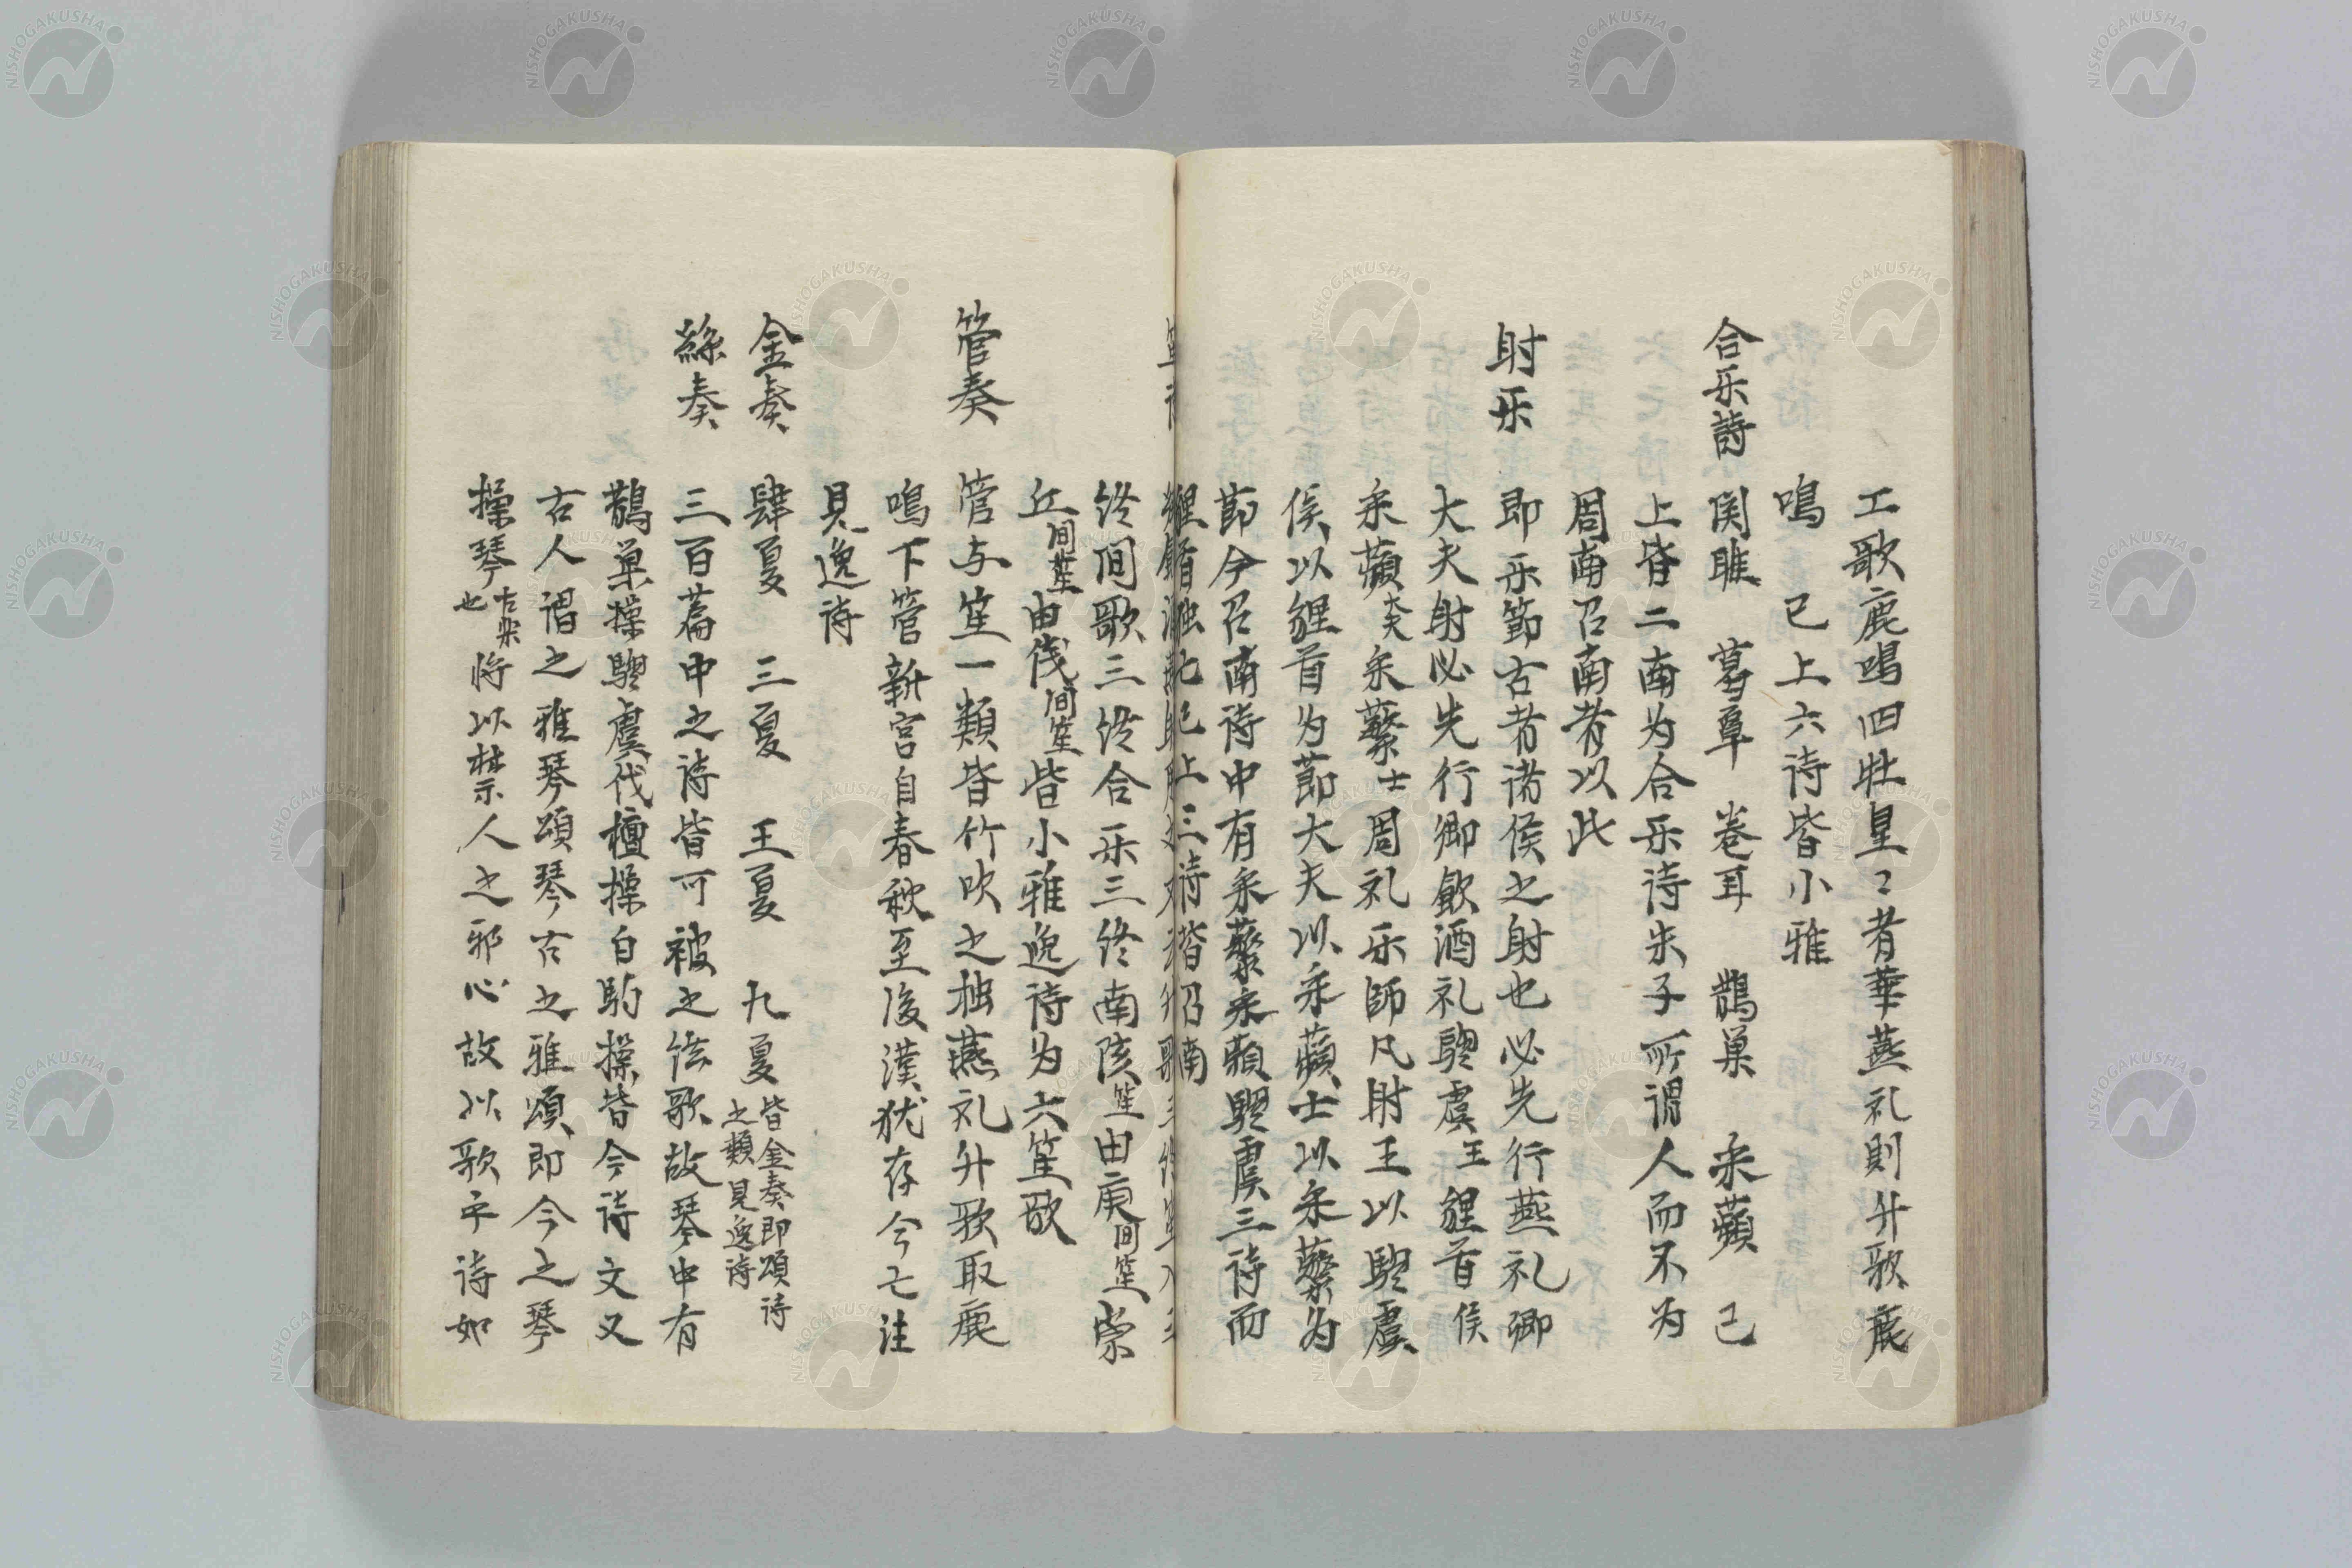 工歌鹿鳴四牡皇〻者華燕礼則升歌鹿
鳴　已上六詩皆小雅
合乐詩　関雎　葛覃　巻耳　鵲巣　采蘋　已
上皆二南为合乐诗朱子所謂人而不为
周南召南者以此
射乐　即乐節古者诸侯之射也必先行燕礼卿
大夫射必先行卿飲酒礼騶虞王貍首侯
采蘋大夫采蘩士周礼乐師凡射王以騶虞
侯以貍首为莭大夫以采蘋士以采蘩为
莭今召南诗中有采蘩采蘋騶虞三诗而
终间歌三终合乐三终南陔笙由庚间笙崇
丘间笙由儀间笙皆小雅逸诗为六笙歌
管奏　管与笙一類皆竹吹之独燕礼升歌取鹿
鳴下管新宮自春秋至後漢犹存今亡注
見逸诗
金奏　肆夏　三夏　王夏　九夏皆金奏即頌诗之類見逸诗
絲奏　三百篇中之诗皆可被之弦歌故琴中有
鵲巣操騶虞伐檀操白駒操皆今诗文又
古人谓之雅琴頌琴古之雅頌即今之琴
操琴古楽也将以禁人之邪心故以歌乎诗如
NISHOGAKUSHA